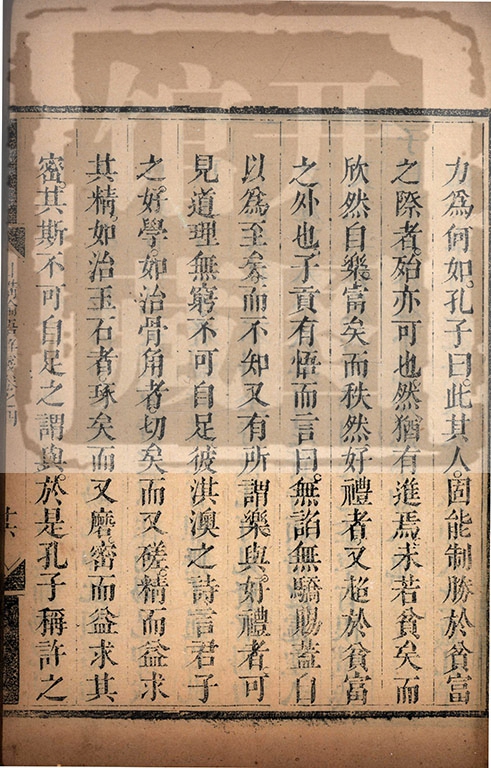 力為何如孔子曰此其人固能制勝於貧富
之際者殆亦可也然猶有進焉未若貧矣而
欣然自樂富矣而秩然好禮者又超於貧富
之外也子貢有悟而言曰無諂無驕賜蓋自
以為至矣而不知又有所謂樂與好禮者可
見道理無窮不可自足彼淇澳之詩言君子
之好學如治骨角者切矣而又磋精而益求
其精如治玉石者琢矣而又磨密而益求其
密其斯不可自足之謂與於是孔子稱許之